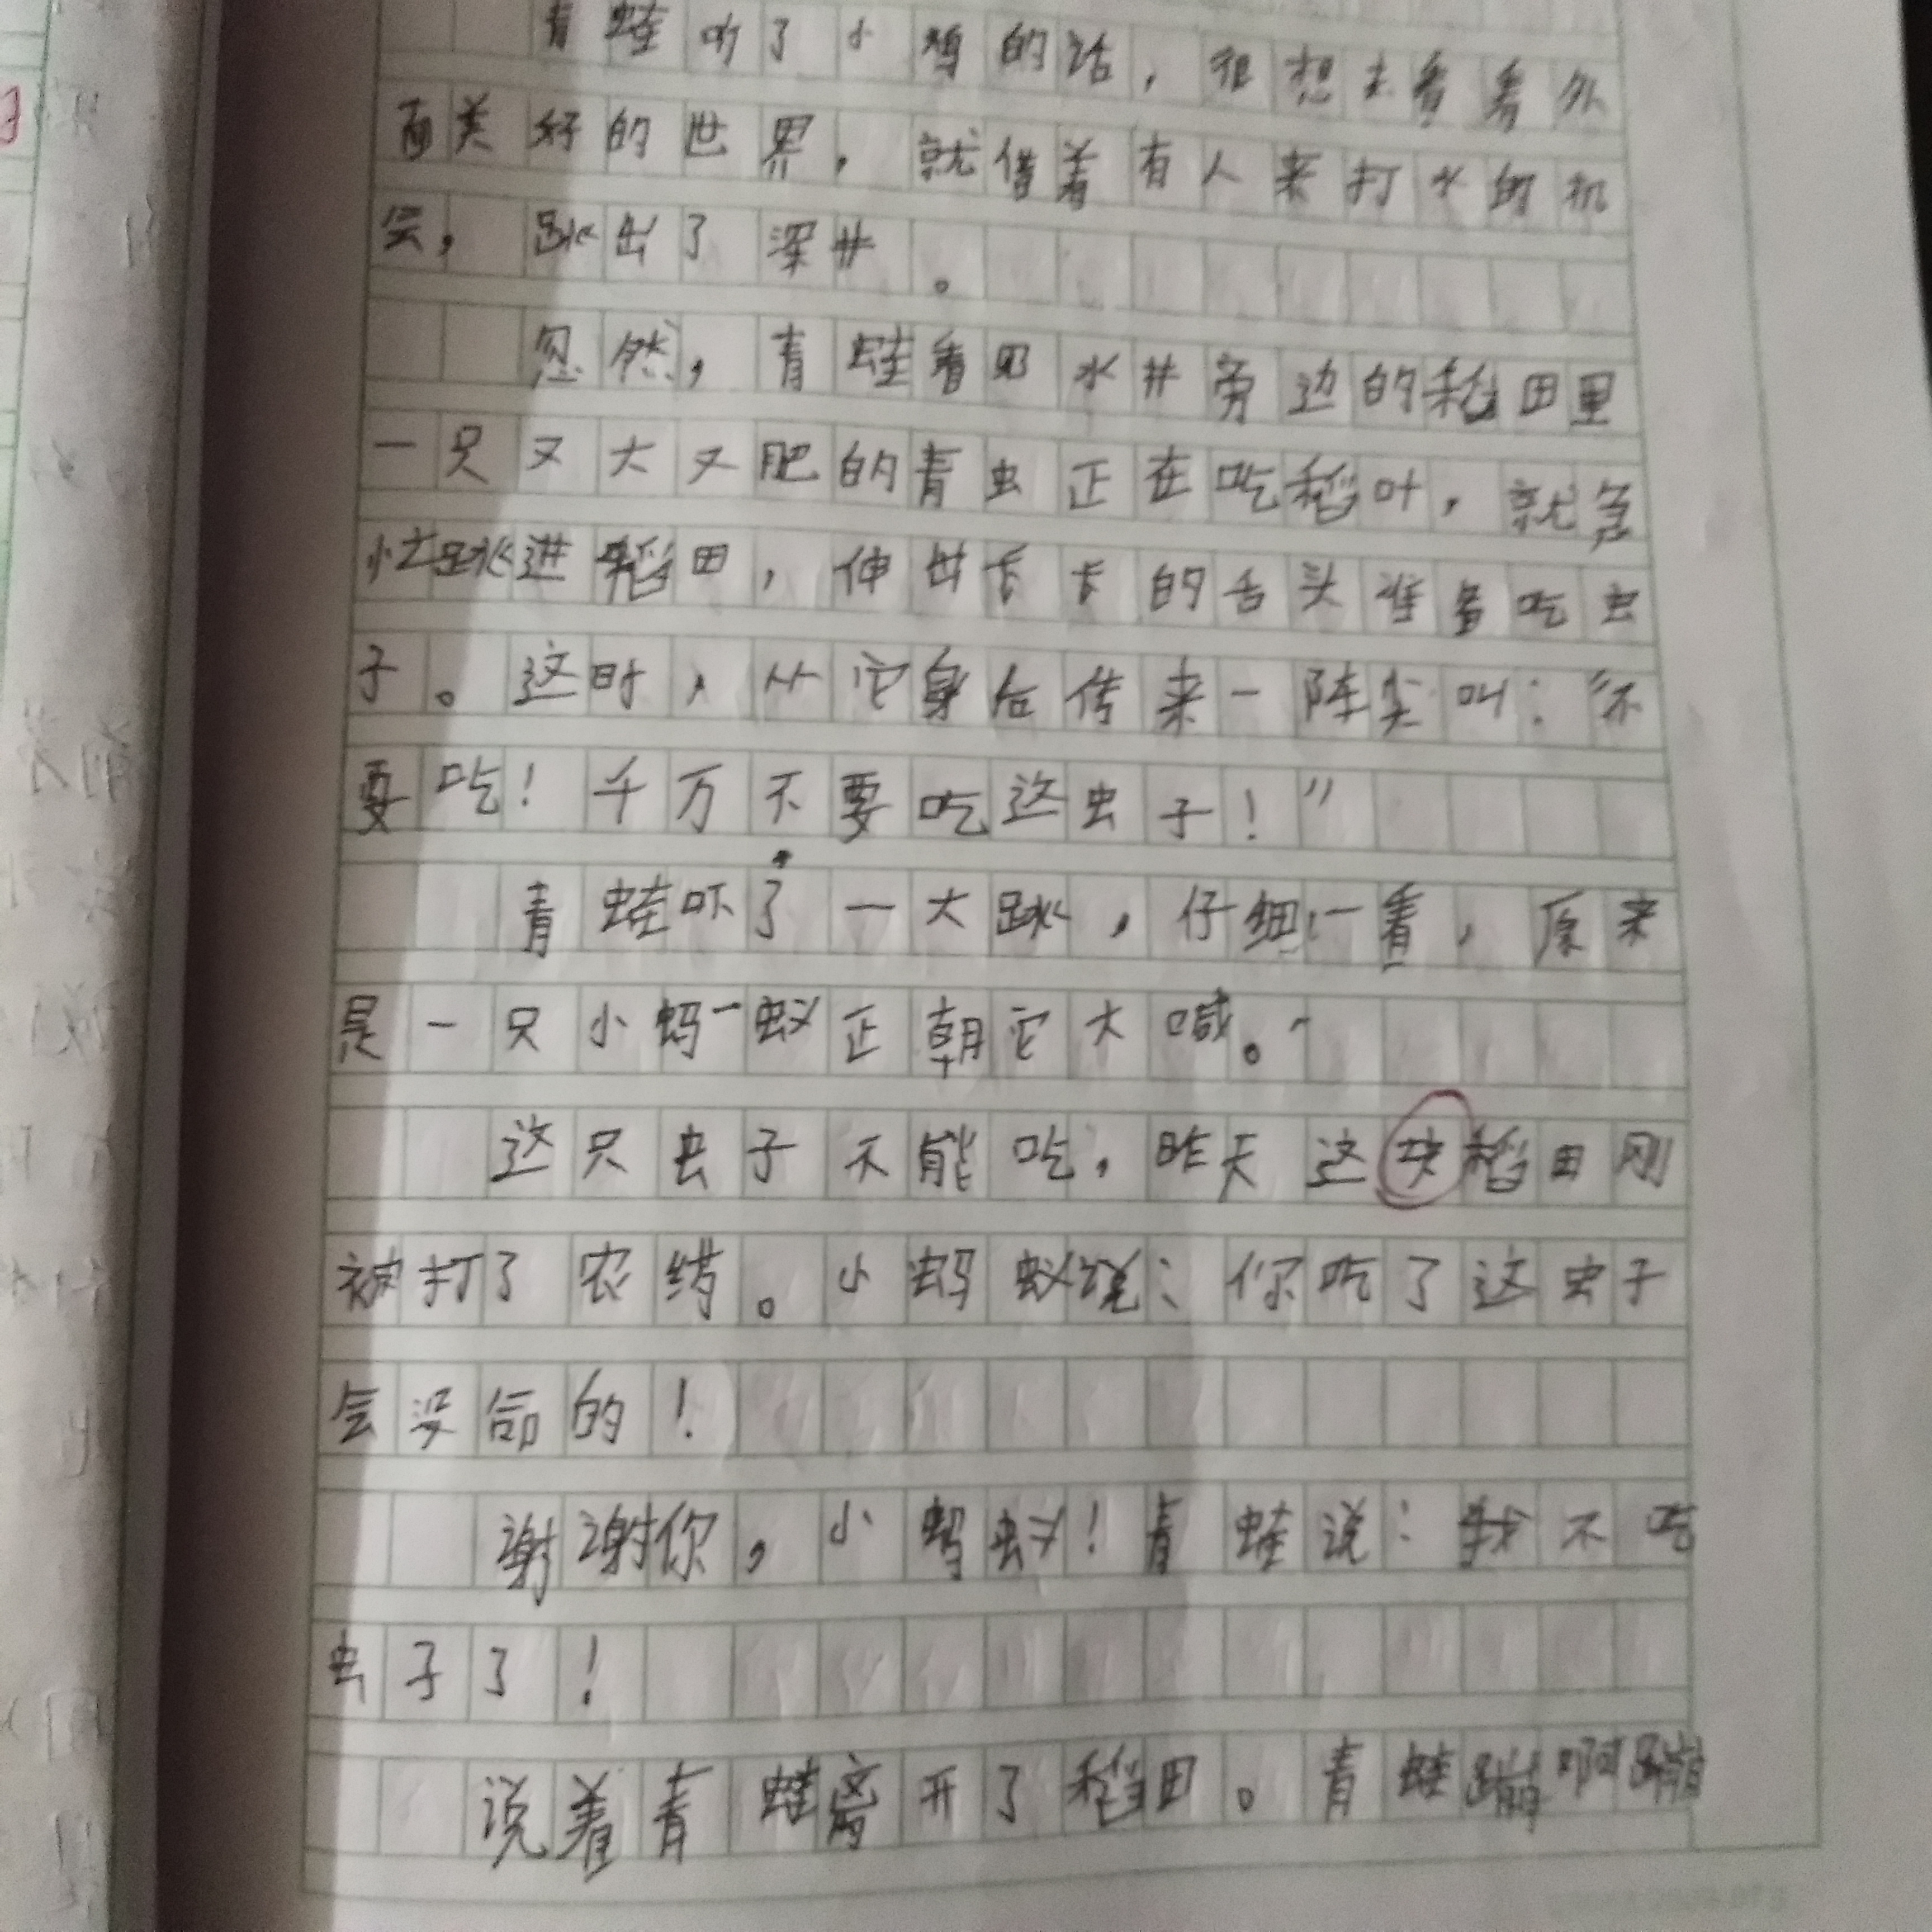 青蛙听了小鸡的话，很想去看看外
面美好的世界，就借着有人来打水的机
会，跳出了深井。
忽然，青蛙看见水井旁边的稻田里
一只又大又肥的青虫正在吃稻叶，就急
忙跳进稻田，伸出长长的舌头准备吃虫
子。这时，从它身后传来一阵尖叫：“不
要吃！千万不要吃这虫子！”
青蛙吓了一大跳，仔细一看，原来
是一只小蚂蚁正朝它大喊。
这只虫子不能吃，昨天这块稻田刚
被打了农药。小蚂蚁说：你吃了这虫子
会没命的！
谢谢你，小蚂蚁！青蛙说：我不吃
虫子了！
说着青蛙离开了稻田。青蛙蹦啊蹦